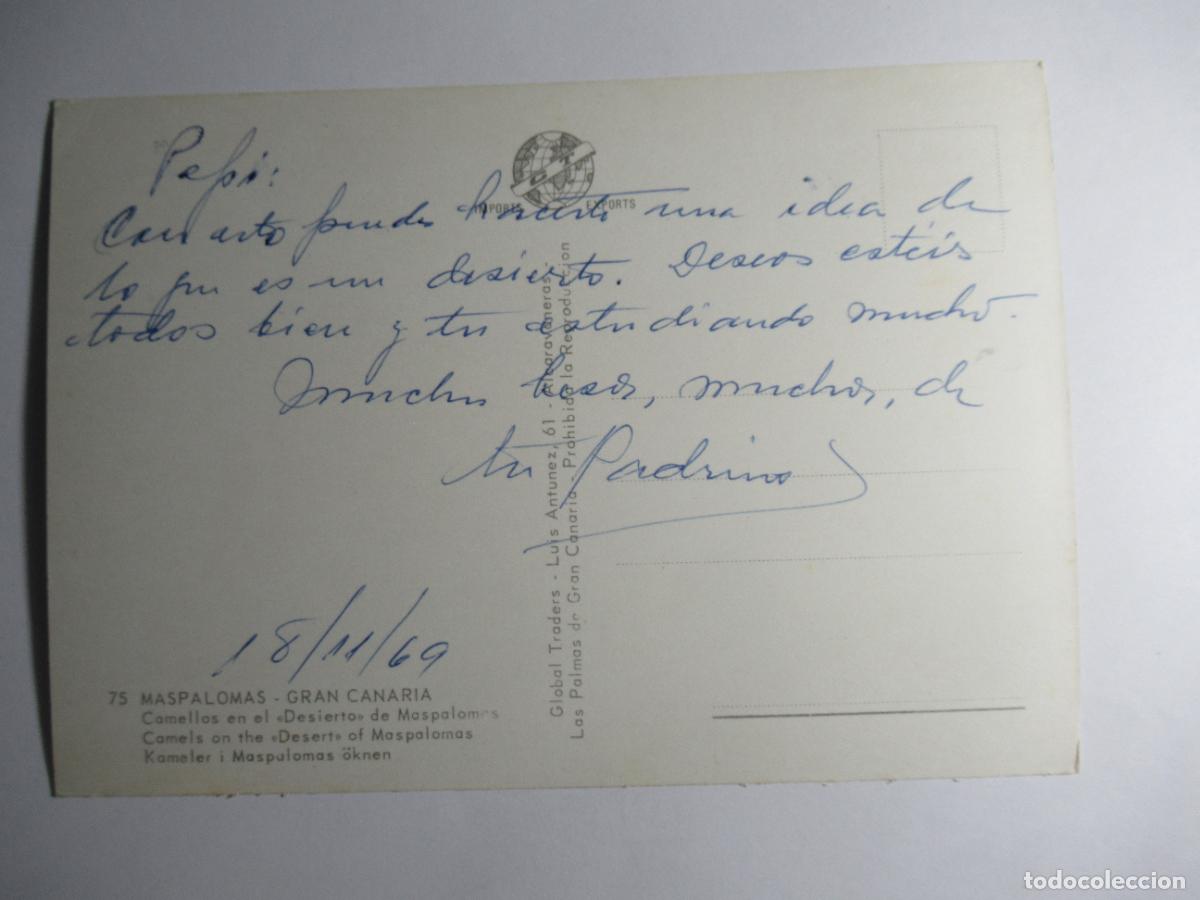 Pepi:
Con esto puedes hacerte una idea de
lo que es un desierto. Deseos estéis
todos bien y tu estudiando mucho.
Muchos besos, muchos, de
tu Padrino
18/11/69
IMPORTS EXPORTS
Global Traders - Luis Antunez, 61 - Alcaravaneras -
Las Palmas de Gran Canaria - Prohibida la Reproduccion
75 MASPALOMAS - GRAN CANARIA
Camellos en el «Desierto» de Maspalomas
Camels on the «Desert» of Maspalomas
Kameler i Maspalomas öknen
todocoleccion